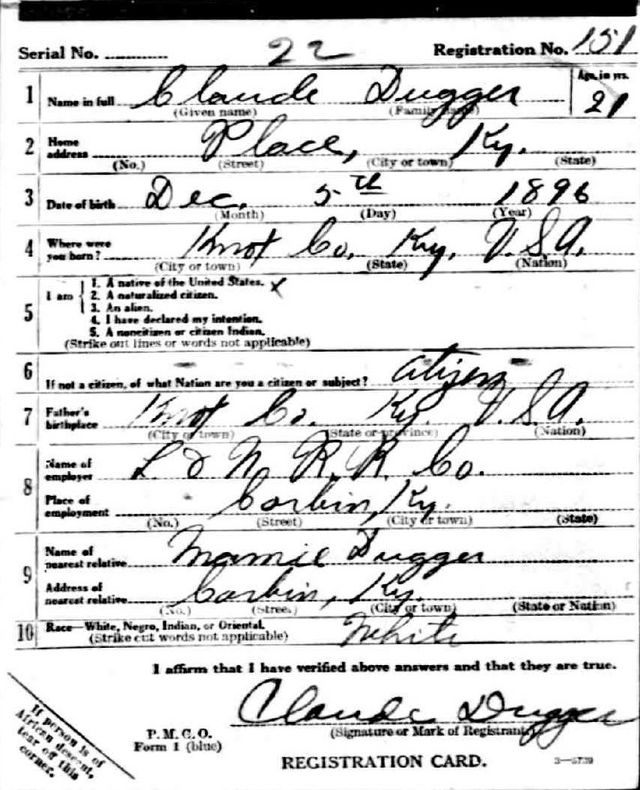 Serial No. 22 Registration No. 151
1 Name in full Claude Dugger Age, in yrs. 21
(Given name) (Family name)
2 Home address Place, Ky.
(No.) (Street) (City or town) (State)
3 Date of birth Dec. 5th 1896
(Month) (Day) (Year)
4 Where were you born? Knot Co. Ky. U.S.A.
(City or town) (State) (Nation)
5 I am
1. A native of the United States. x
2. A naturalized citizen.
3. An alien.
4. I have declared my intention.
5. A noncitizen or citizen Indian.
(Strike out lines or words not applicable)
6 If not a citizen, of what Nation are you a citizen or subject? Citizen
7 Father's birthplace Knot Co. Ky. U.S.A.
(City or town) (State or province) (Nation)
8 Name of employer L & N R. R. Co.
Place of employment Corbin, Ky.
(No.) (Street) (City or town) (State)
9 Name of nearest relative Mamie Dugger
Address of nearest relative Corbin, Ky.
(No.) (Street) (City or town) (State or Nation)
10 Race—White, Negro, Indian, or Oriental. White
(Strike out words not applicable)
I affirm that I have verified above answers and that they are true.
Claude Dugger
(Signature or Mark of Registrant)
P.M.G.O.
Form 1 (blue)
REGISTRATION CARD.
3—5739
If person is of
African descent,
tear off this
corner.